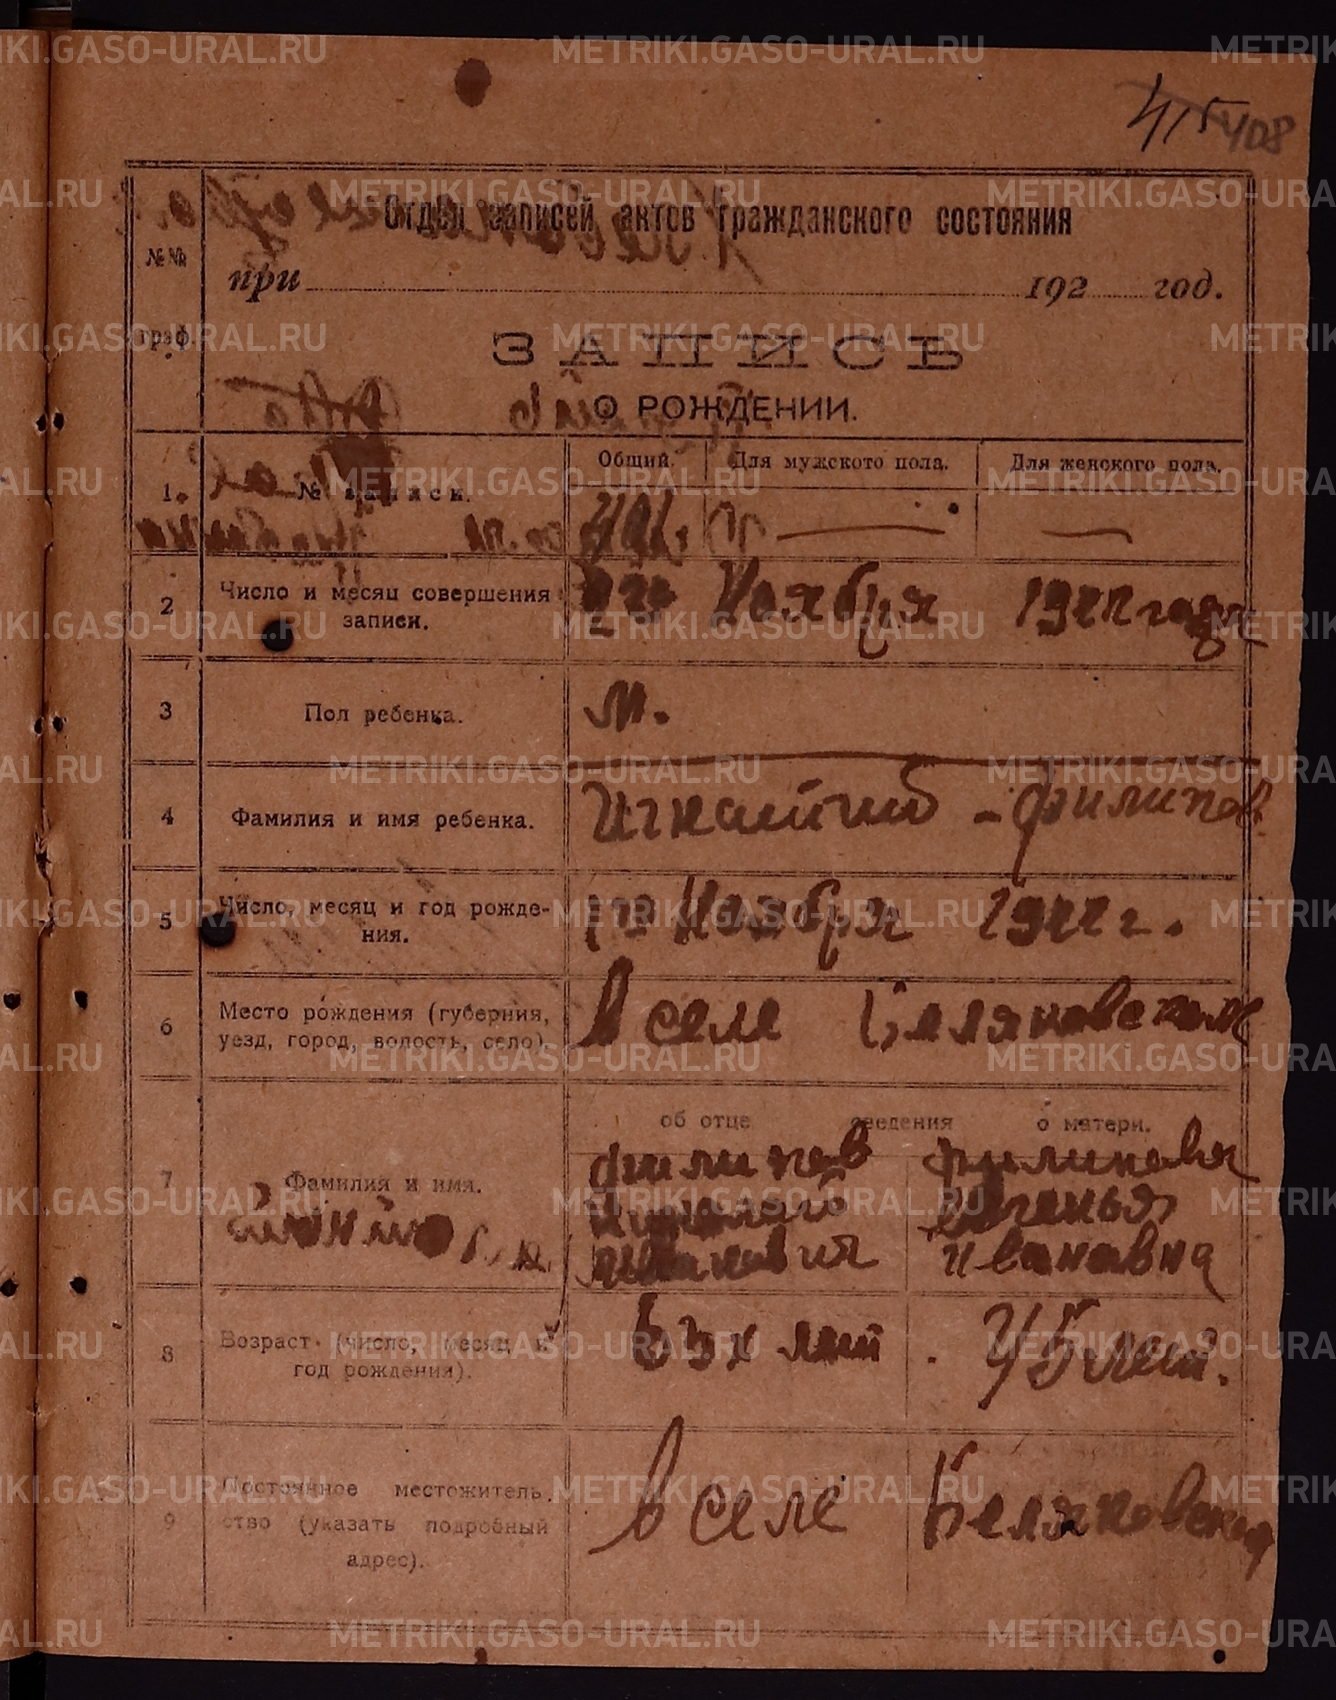 415 408
Отдел записей актов гражданского состояния
№№
при 192 год.
граф.
ЗАПИСЬ
О РОЖДЕНИИ.
Общий. Для мужского пола. Для женского пола.
1. № записи.
2 Число и месяц совершения
записи.
Ноября 1922 года
3 Пол ребенка. М.
4 Фамилия и имя ребенка. Игнатий - Филипов.
5 Число, месяц и год рожде-
ния.
Ноября 1922 г.
6 Место рождения (губерния,
уезд, город, волость, село).
В селе Беляковском
об отце сведения о матери.
7 Фамилия и имя.
Филипов Филипова
Евгенья
Ивановна
8 Возраст (число, месяц и
год рождения).
лет 45 лет.
9 Постоянное местожитель-
ство (указать подробный
адрес).
В селе Беляковском
METRIKI.GASO-URAL.RU